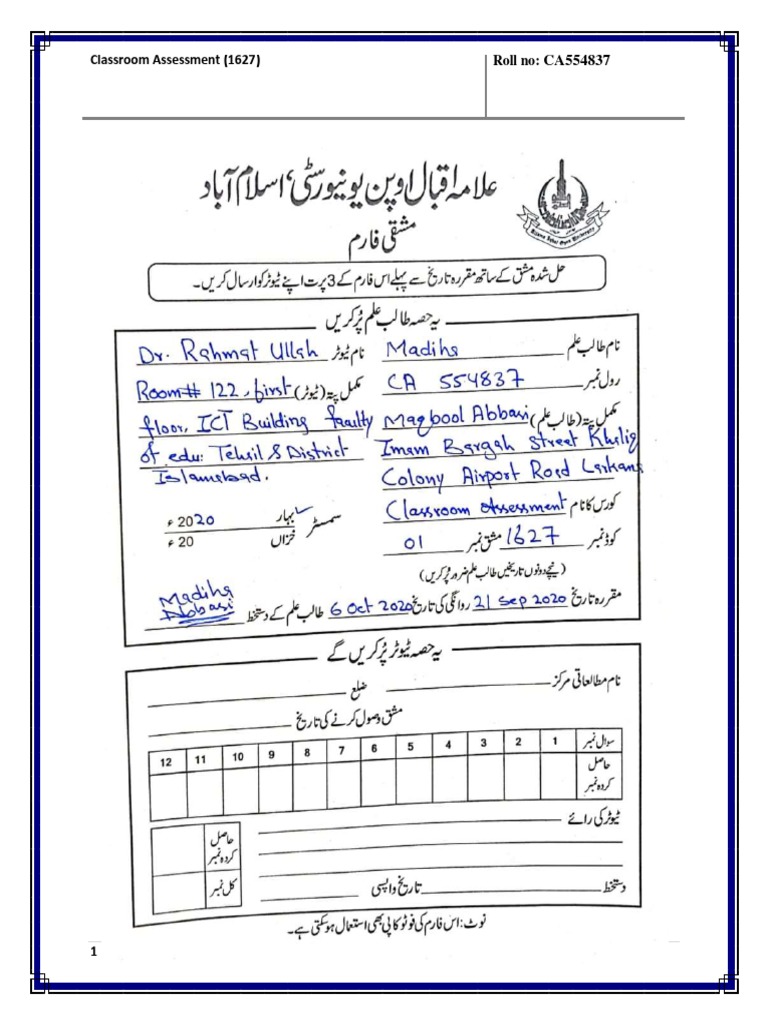 Classroom Assessment (1627) Roll no: CA554837
علامہ اقبال اوپن یونیورسٹی، اسلام آباد
Allama Iqbal Open University
مشقی فارم
حل شدہ مشق کے ساتھ مقررہ تاریخ سے پہلے اس فارم کے 3 پرت اپنے ٹیوٹر کو ارسال کریں۔
یہ حصہ طالب علم پُر کریں
نام طالب علم Madiha نام ٹیوٹر Dr. Rahmat Ullah
رول نمبر CA 554837 مکمل پتہ (ٹیوٹر) Room# 122, first
مکمل پتہ (طالب علم) Maqbool Abbasi floor, ICT Building faculty
Imam Bargah Street Khaliq of edu: Tehsil & District
Colony Airport Road Larkana Islamabad.
کورس کا نام Classroom Assessment سمسٹر بہار ✓ 2020ء
کوڈ نمبر 1627 مشق نمبر 01 خزاں 20ء
(نیچے دونوں تاریخیں طالب علم ضرور پُر کریں)
مقررہ تاریخ 21 Sep 2020 روانگی کی تاریخ 6 Oct 2020 طالب علم کے دستخط Madiha Abbasi
یہ حصہ ٹیوٹر پُر کریں گے
نام مطالعاتی مرکز ضلع
مشق وصول کرنے کی تاریخ
سوال نمبر 1 2 3 4 5 6 7 8 9 10 11 12
حاصل کردہ نمبر
ٹیوٹر کی رائے
حاصل کردہ نمبر
کل نمبر
دستخط تاریخ واپسی
نوٹ: اس فارم کی فوٹو کاپی بھی استعمال ہو سکتی ہے۔
1